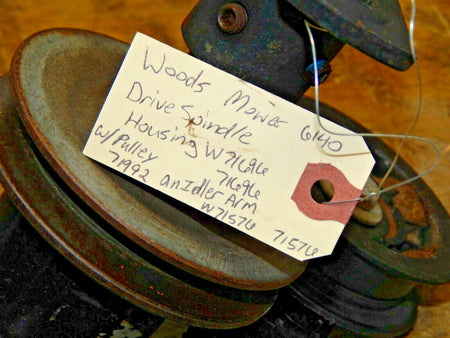 Woods Mower 6140
Drive Spindle
Housing W71696
71696
W/Pulley
71992 an Idler Arm
W71576 71576